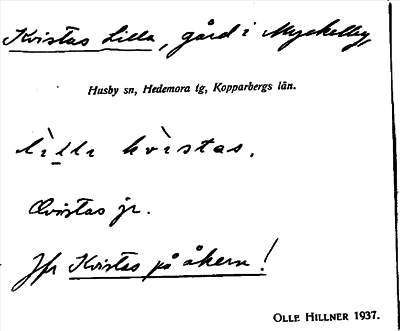 Kvistas Lilla, gård i Myckelby,
Husby sn, Hedemora tg, Kopparbergs län.
lìlli kvìstas.
Qvistas jr.
Jfr Kvistas på åkern!
OLLE HILLNER 1937.